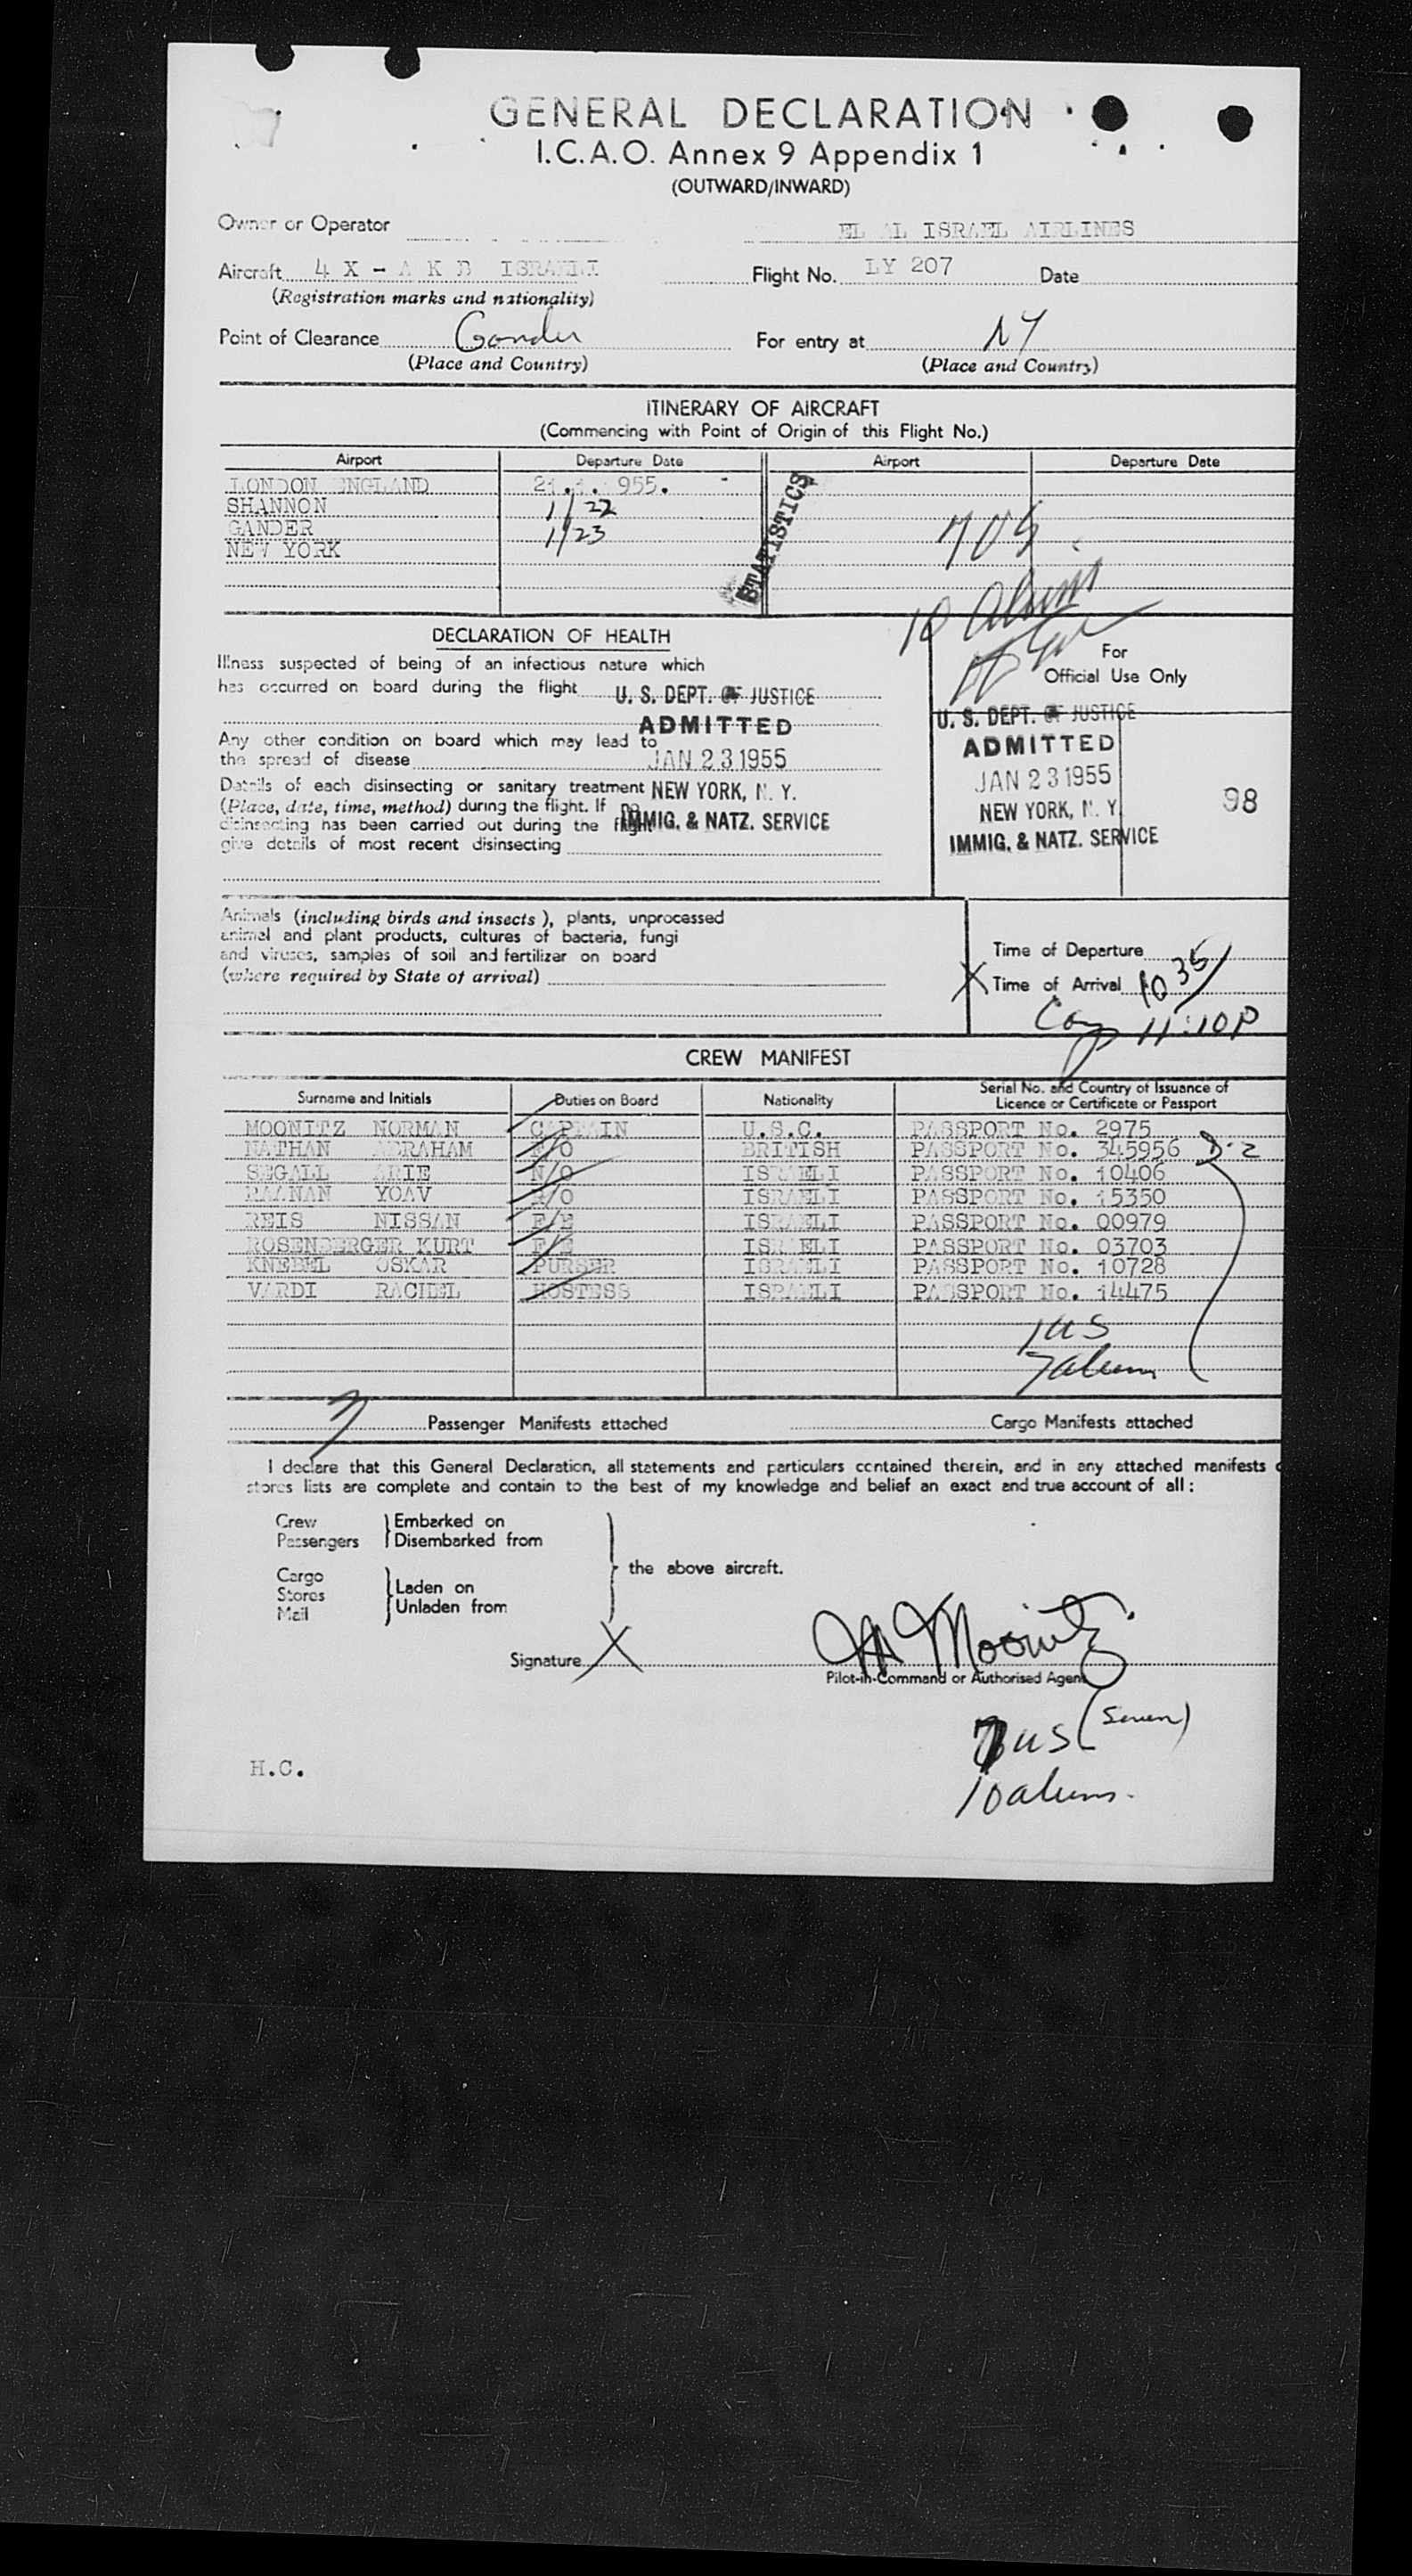 GENERAL DECLARATION
I.C.A.O. Annex 9 Appendix 1
(OUTWARD/INWARD)
Owner or Operator EL AL ISRAEL AIRLINES
Aircraft 4 X - A K B ISRAELI Flight No. LY 207 Date
(Registration marks and nationality)
Point of Clearance Gander For entry at NY
(Place and Country) (Place and Country)
ITINERARY OF AIRCRAFT
(Commencing with Point of Origin of this Flight No.)
Airport Departure Date Airport Departure Date
LONDON ENGLAND 21.1. 955.
SHANNON 1/22
GANDER 1/23
NEW YORK
STATISTICS
7 US
10 Alum
DECLARATION OF HEALTH
Illness suspected of being of an infectious nature which
has occurred on board during the flight
Any other condition on board which may lead to
the spread of disease
Details of each disinsecting or sanitary treatment
(Place, date, time, method) during the flight. If no
disinsecting has been carried out during the flight
give details of most recent disinsecting
U. S. DEPT. OF JUSTICE
ADMITTED
JAN 23 1955
NEW YORK, N. Y.
IMMIG. & NATZ. SERVICE
For
Official Use Only
U. S. DEPT. OF JUSTICE
ADMITTED
JAN 23 1955
NEW YORK, N. Y.
IMMIG. & NATZ. SERVICE
98
Animals (including birds and insects), plants, unprocessed
animal and plant products, cultures of bacteria, fungi
and viruses, samples of soil and fertilizer on board
(where required by State of arrival)
Time of Departure
X Time of Arrival 10 35
11:10 P
CREW MANIFEST
Surname and Initials Duties on Board Nationality Serial No. and Country of Issuance of
Licence or Certificate or Passport
MOONITZ NORMAN CAPTAIN U.S.C. PASSPORT No. 2975
NATHAN ABRAHAM F/O BRITISH PASSPORT No. 345956 D-2
SEGALL ARIE N/O ISRAELI PASSPORT No. 10406
RAANAN YOAV R/O ISRAELI PASSPORT No. 15350
REIS NISSAN F/E ISRAELI PASSPORT No. 00979
ROSENBERGER KURT F/E ISRAELI PASSPORT No. 03703
KNEBEL OSKAR PURSER ISRAELI PASSPORT No. 10728
VARDI RACHEL HOSTESS ISRAELI PASSPORT No. 14475
1 US
7 alum
3 Passenger Manifests attached Cargo Manifests attached
I declare that this General Declaration, all statements and particulars contained therein, and in any attached manifests
stores lists are complete and contain to the best of my knowledge and belief an exact and true account of all:
Crew Embarked on
Passengers Disembarked from
the above aircraft.
Cargo
Stores Laden on
Mail Unladen from
Signature X N Moonitz
Pilot-in-Command or Authorised Agent
7 US (Seven)
10 alums.
H.C.